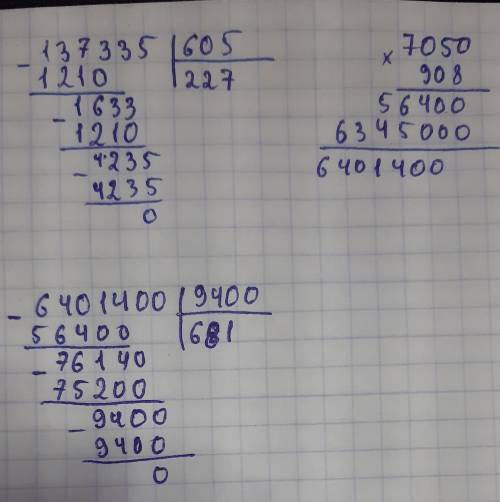 - 137335 | 605
1210 | 227
- 1633
1210
- 4235
4235
0
× 7050
908
56400
6345000
6401400
- 6401400 | 9400
56400 | 681
- 76140
75200
- 9400
9400
0